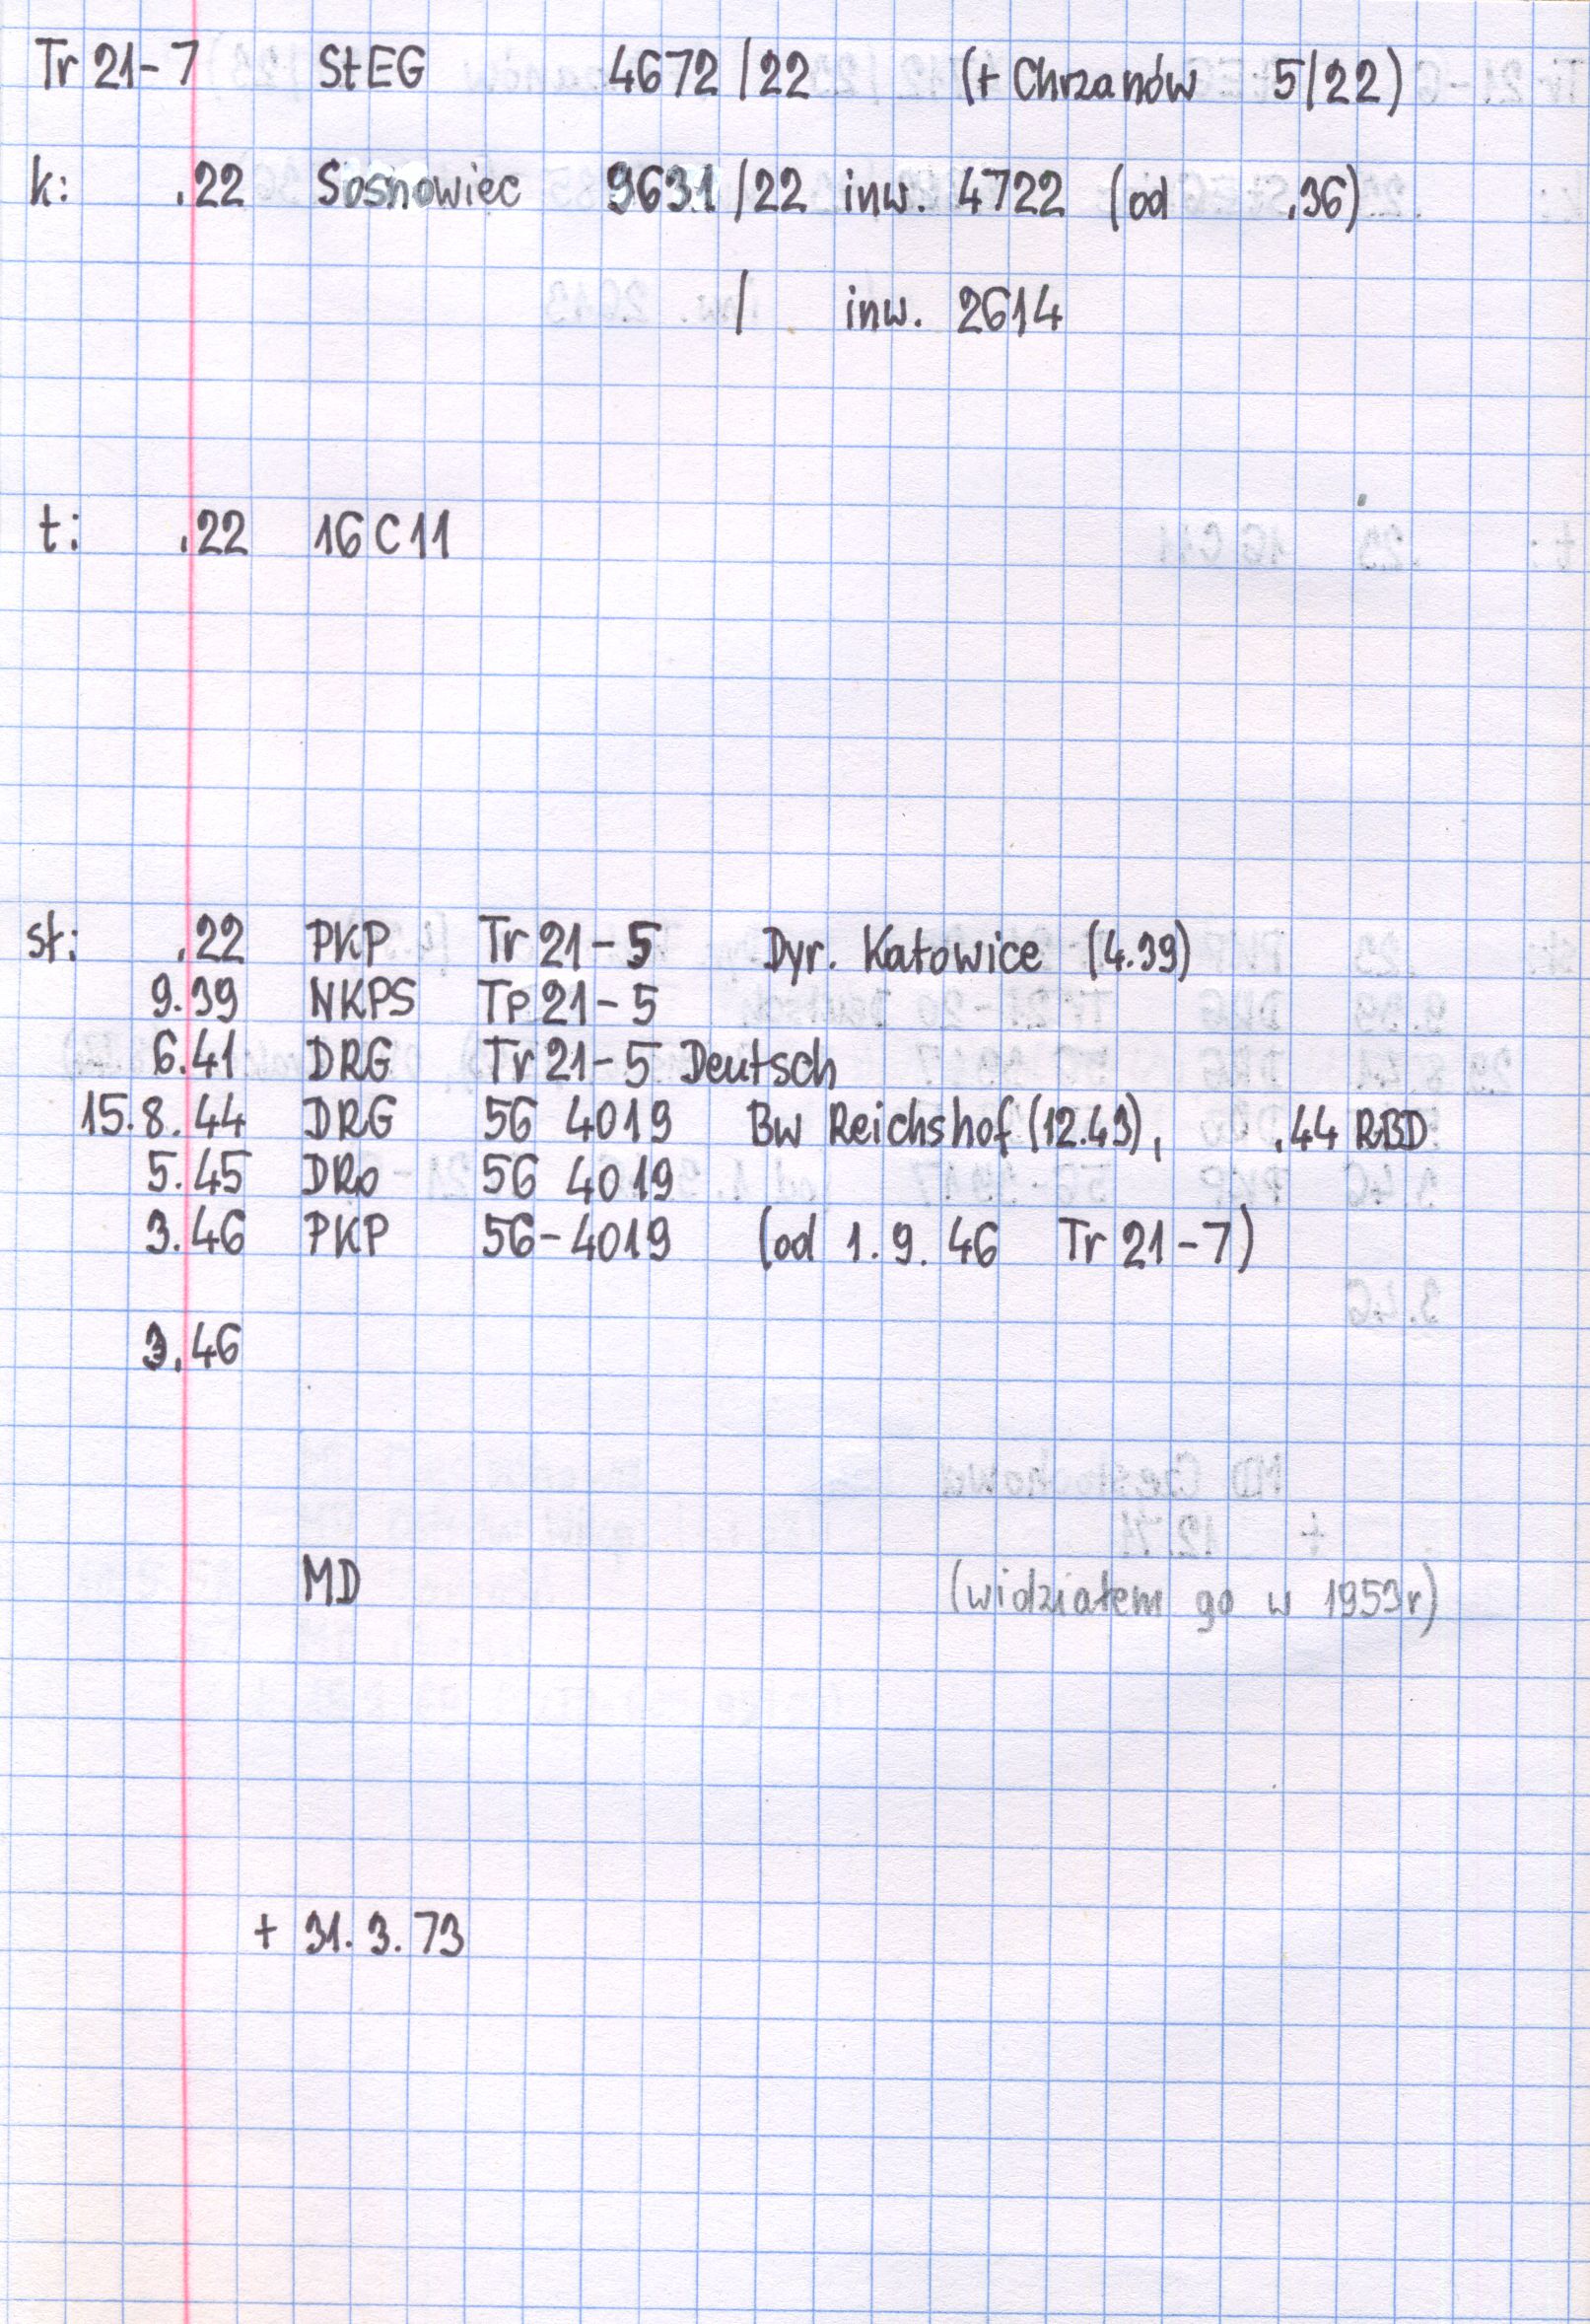 Tr 21-7 StEG 4672/22 (+ Chrzanów 5/22)
k: .22 Sosnowiec 9631/22 inw. 4722 (od .36)
/ inw. 2614
t: .22 16C11
st: .22 PKP Tr 21-5 Dyr. Katowice (4.39)
9.39 NKPS Tp 21-5
6.41 DRG Tr 21-5 Deutsch
15.8.44 DRG 56 4019 Bw Reichshof (12.43), .44 RBD
5.45 DRo 56 4019
3.46 PKP 56-4019 (od 1.9.46 Tr 21-7)
3.46
MD (widziałem go w 1953r)
+ 31.3.73